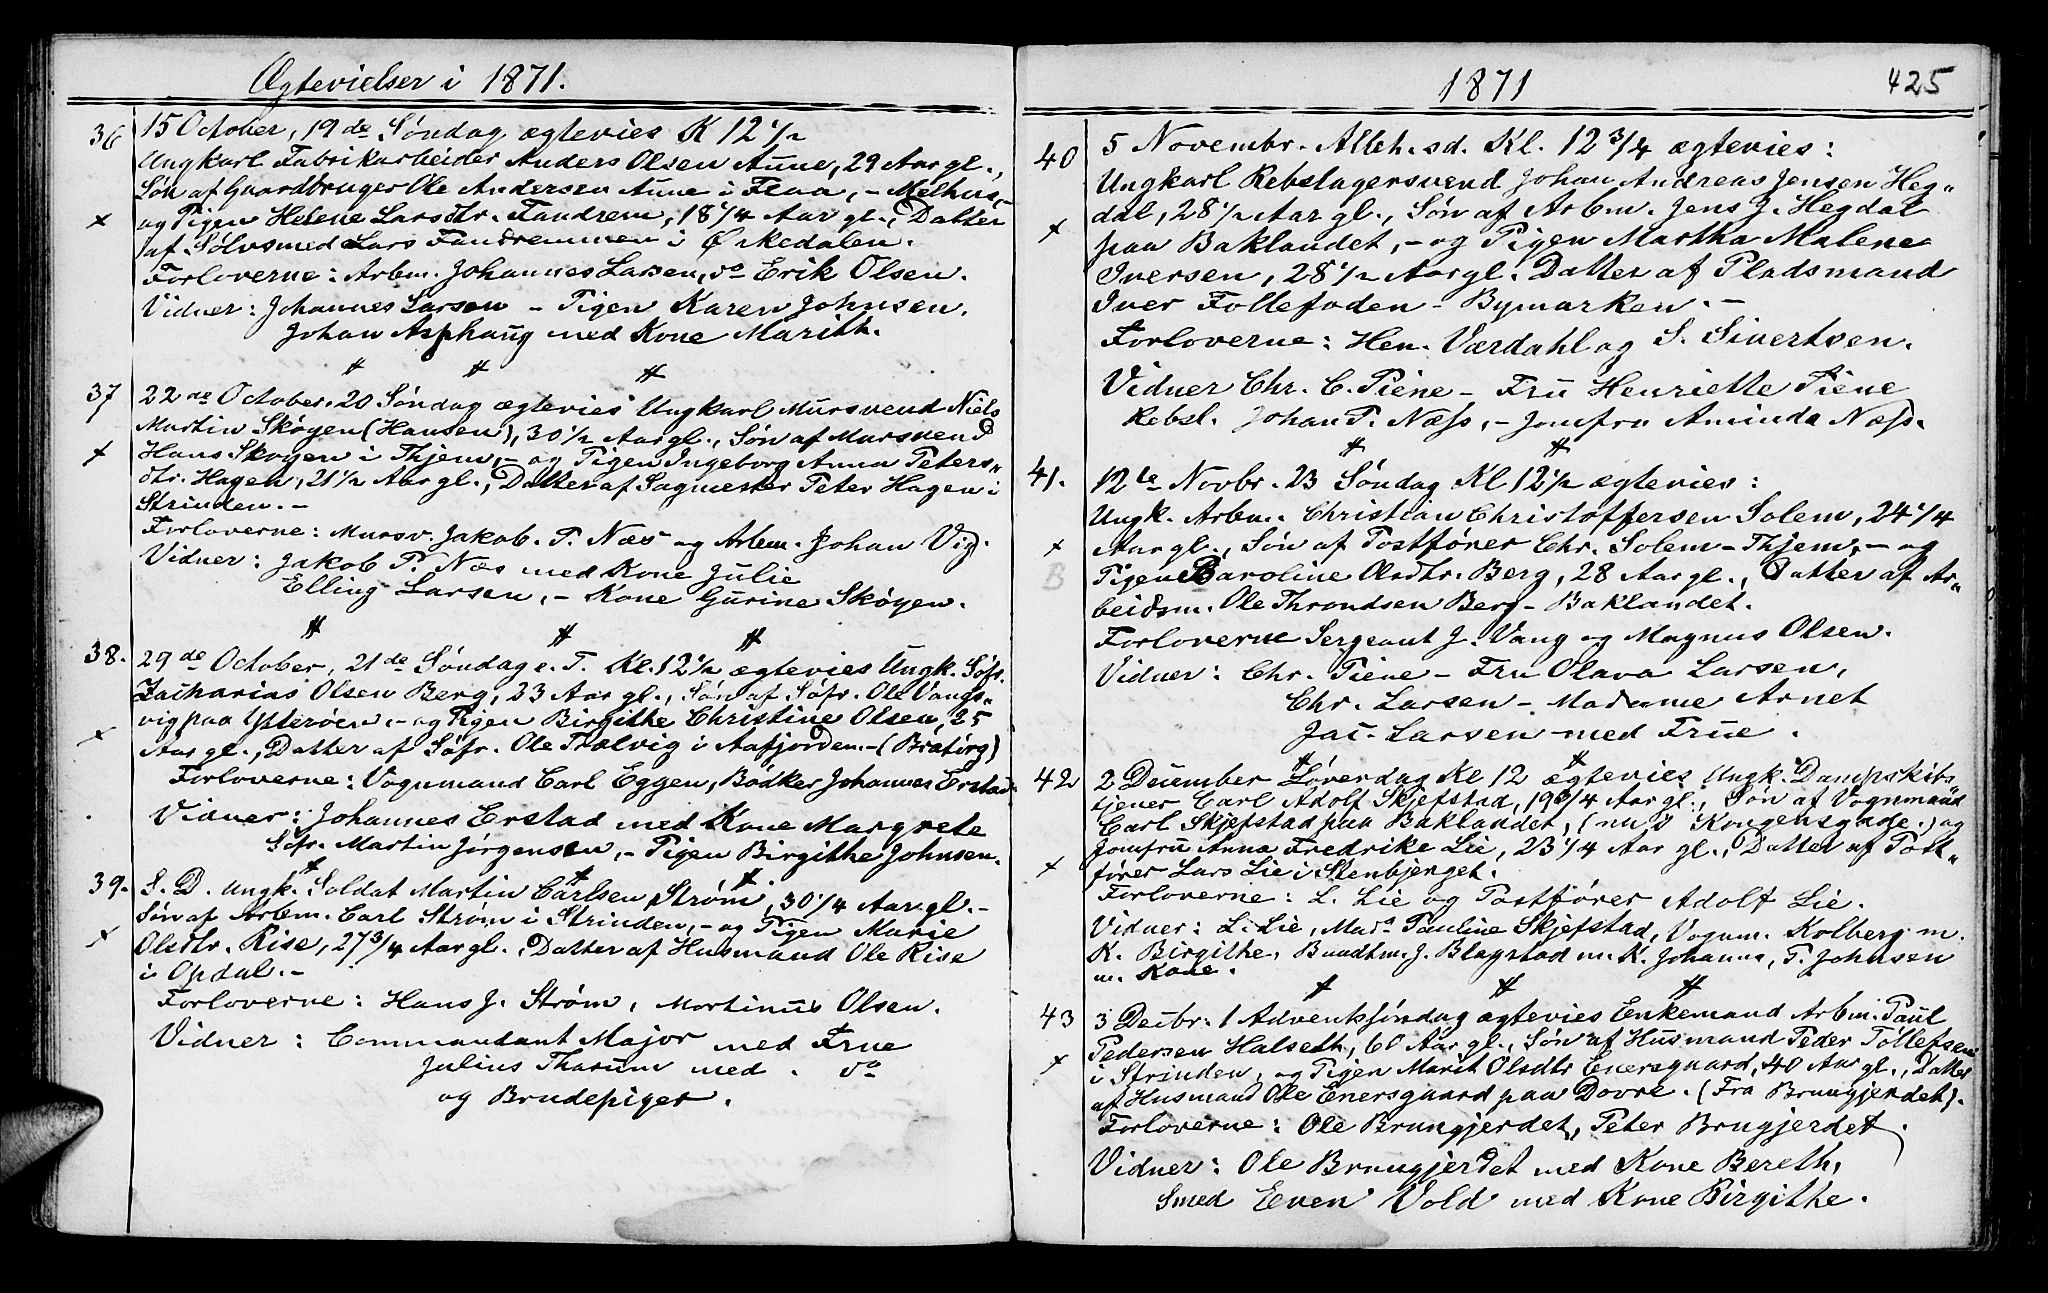 Ægtevielser i 1871.
36 15 October, 19de Söndag ægtevies K 12 1/2
Ungkarl Fabrikarbeider Anders Olsen Aune, 29 Aar gl.,
Søn af Gaardbruger Ole Andersen Aune i Flaa, - Melhus,
x og Pigen Helene Larsdtr. Fandrem, 18 1/4 Aar gl., Datter
af Sølvsmed Lars Fandremmen i Ørkedalen.
Forloverne: Arbm. Johannes Larsen, do Erik Olsen.
Vidner: Johannes Larsen - Pigen Karen Johnsen.
Johan Asphaug med Kone Marith.
37 22de October. 20 Söndag ægtevies Ungkarl Mursvend Niels
Martin Skøyen (Hansen), 30 1/2 Aar gl., Søn af Mursvend
x Hans Skøyen i Thjem, - og Pigen Ingeborg Anna Peters-
dtr. Hagen, 21 1/2 Aar gl., Datter af Sagmester Peter Hagen i
Strinden. -
Forloverne: Mursv. Jakob. P. Næs og Arbm. Johan Vig.
Vidner: Jakob P. Næs med Kone Julie
Elling Larsen, - Kone Gurine Skøyen.
38. 29de October, 21de Söndag e. T. Kl. 12 1/2 ægtevies Ungk. Söfr.
Zacharias Olsen Berg, 23 Aar gl., Søn af Söfr. Ole Vangs-
vig paa Ytterøen, - og Pigen Birgithe Christine Olsen, 25
x Aar gl., Datter af Söfr. Ole Trælvig i Aafjorden. - (Bratörg)
Forloverne: Vognmand Carl Eggen, Bødker Johannes Erstad.
Vidner: Johannes Erstad med Kone Margrete
Söfr. Martin Jørgensen, - Pigen Birgithe Johnsen.
39. S. D. Ungk. Soldat Martin Carlsen Strøm, 30 1/4 Aar gl. -
Søn af Arbm. Carl Strøm i Strinden, - og Pigen Marie
x Olsdtr. Rise, 27 3/4 Aar gl., Datter af Husmand Ole Rise
i Opdal. -
Forloverne: Hans J. Strøm, Martinus Olsen.
Vidner: Commandant Major med Frue
Julius Tharum med. do
og Brudepiger.
1871 425
40 5 Novembr. Alleh. sd. Kl. 12 3/4 ægtevies:
Ungkarl Rebslagersvend Johan Andreas Jensen Heg-
x dal, 28 1/2 Aar gl., Søn af Arbm. Jens J. Hegdal
paa Baklandet, - og Pigen Martha Malene
Iversen, 28 1/2 Aar gl. Datter af Pladsmand
Iver Tollefoden - Bymarken. -
Forloverne: Hen. Værdahl og S. Sivertsen.
Vidner Chr. C. Piene - Fru Henriette Piene
Rebsl. Johan P. Næss, - Jomfru Aminda Næss.
41. 12te Novbr. 23 Söndag Kl 12 1/2 ægtevies:
Ungk. Arbm. Christian Christoffersen Solem, 24 1/4
x Aar gl., Søn af Postfører Chr. Solem - Thjem, - og
B Pigen Caroline Olsdtr. Berg, 28 Aar gl., Datter af Ar-
beidsm. Ole Throndsen Berg - Baklandet.
Forloverne Sergeant J. Vang og Magnus Olsen.
Vidner: Chr. Piene - Fru Olava Larsen,
Chr. Larsen - Madame Arnet
Jac. Larsen med Frue.
42 2 December Löverdag Kl 12 ægtevies Ungk. Dampskibs-
tjener Carl Adolf Skjefstad, 19 3/4 Aar gl., Søn af Vognmand
Carl Skjefstad paa Baklandet, (nu i Kongensgade.) og
Jomfru Anna Fredrike Lie, 23 1/4 Aar gl., Datter af Post-
x fører Lars Lie i Stenbjerget.
Forloverne: L. Lie og Postfører Adolf Lie.
Vidner: L. Lie, Mada Pauline Skjefstad, Vognm. Kolberg m.
K. Birgithe, Baadtm. J. Blagstad m. K. Johanna, P. Johnsen
m. Kone.
43 3 Decbr. 1 Adventssöndag ægtevies Enkemand Arbm. Paul
x Pedersen Halseth, 60 Aar gl., Søn af Husmand Peder Tollefsen
i Strinden, og Pigen Marit Olsdtr Enersgaard, 40 Aar gl., Datter
af Husmand Ole Enersgaard paa Dovre. (Fra Brungjerdet).
Forloverne: Ole Brungjerdet, Peter Brugjerdet.
Vidner: Ole Brungjerdet med Kone Bereth,
Smed Even Vold med Kone Birgithe.